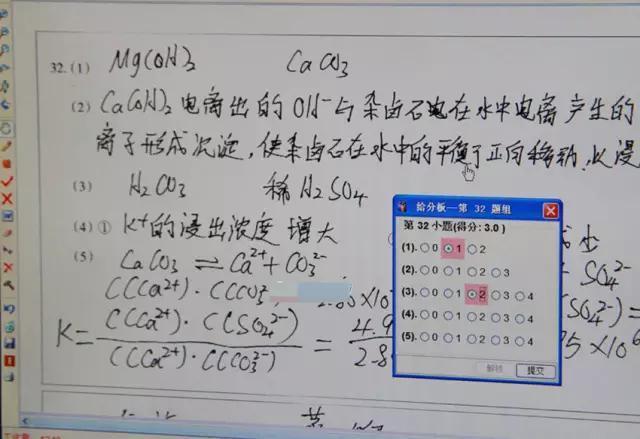 32.(1) Mg(OH)2 CaCO3
(2) Ca(OH)2电离出的OH-与杂卤石电在水中电离产生的
离子形成沉淀,使杂卤石在水中的平衡于正向移动,K浸
(3) H2CO3 稀H2SO4
(4)① K+的浸出浓度增大
(5) CaCO3⇌Ca2++CO32- SO42-
C(Ca2+)·C(CO32-
K= C(Ca2+)·C(SO42-) / C(Ca2+)·C(CO32-) = 4.9 / 2.8
给分板—第 32 题组
第 32 小题(得分: 3.0 )
(1). 0 1 2
(2). 0 1 2 3
(3). 0 1 2 3 4
(4). 0 1 2 3 4
(5). 0 1 2 3 4
提交